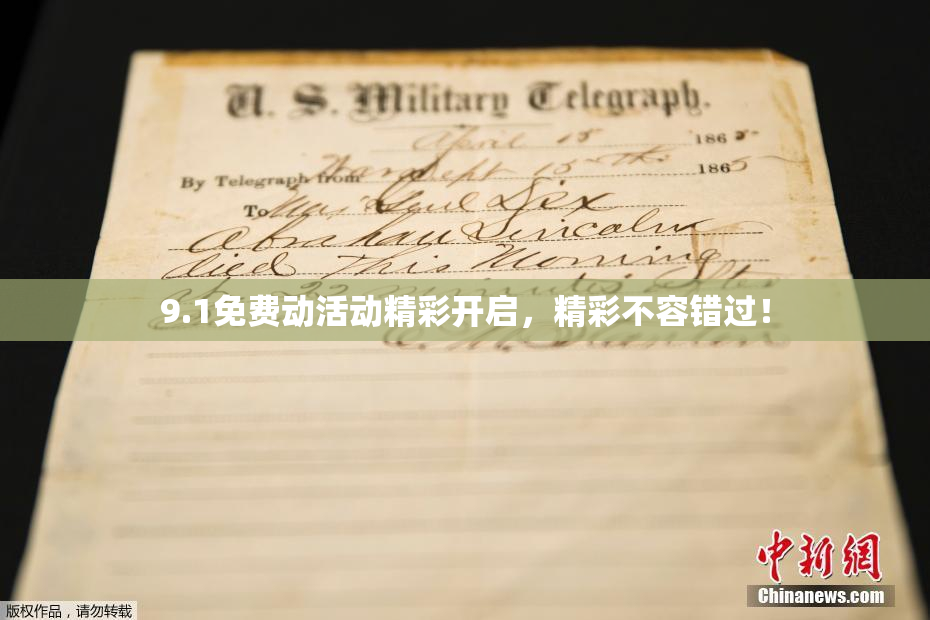 U. S. Military Telegraph.
April 15 1865
By Telegraph from War Dept 15th 1865
To Maj Genl Dix
Abraham Lincoln
died This Morning
at 22 minutes after
9.1免费动活动精彩开启，精彩不容错过！
E. M. Stanton
中新网
Chinanews.com
版权作品，请勿转载